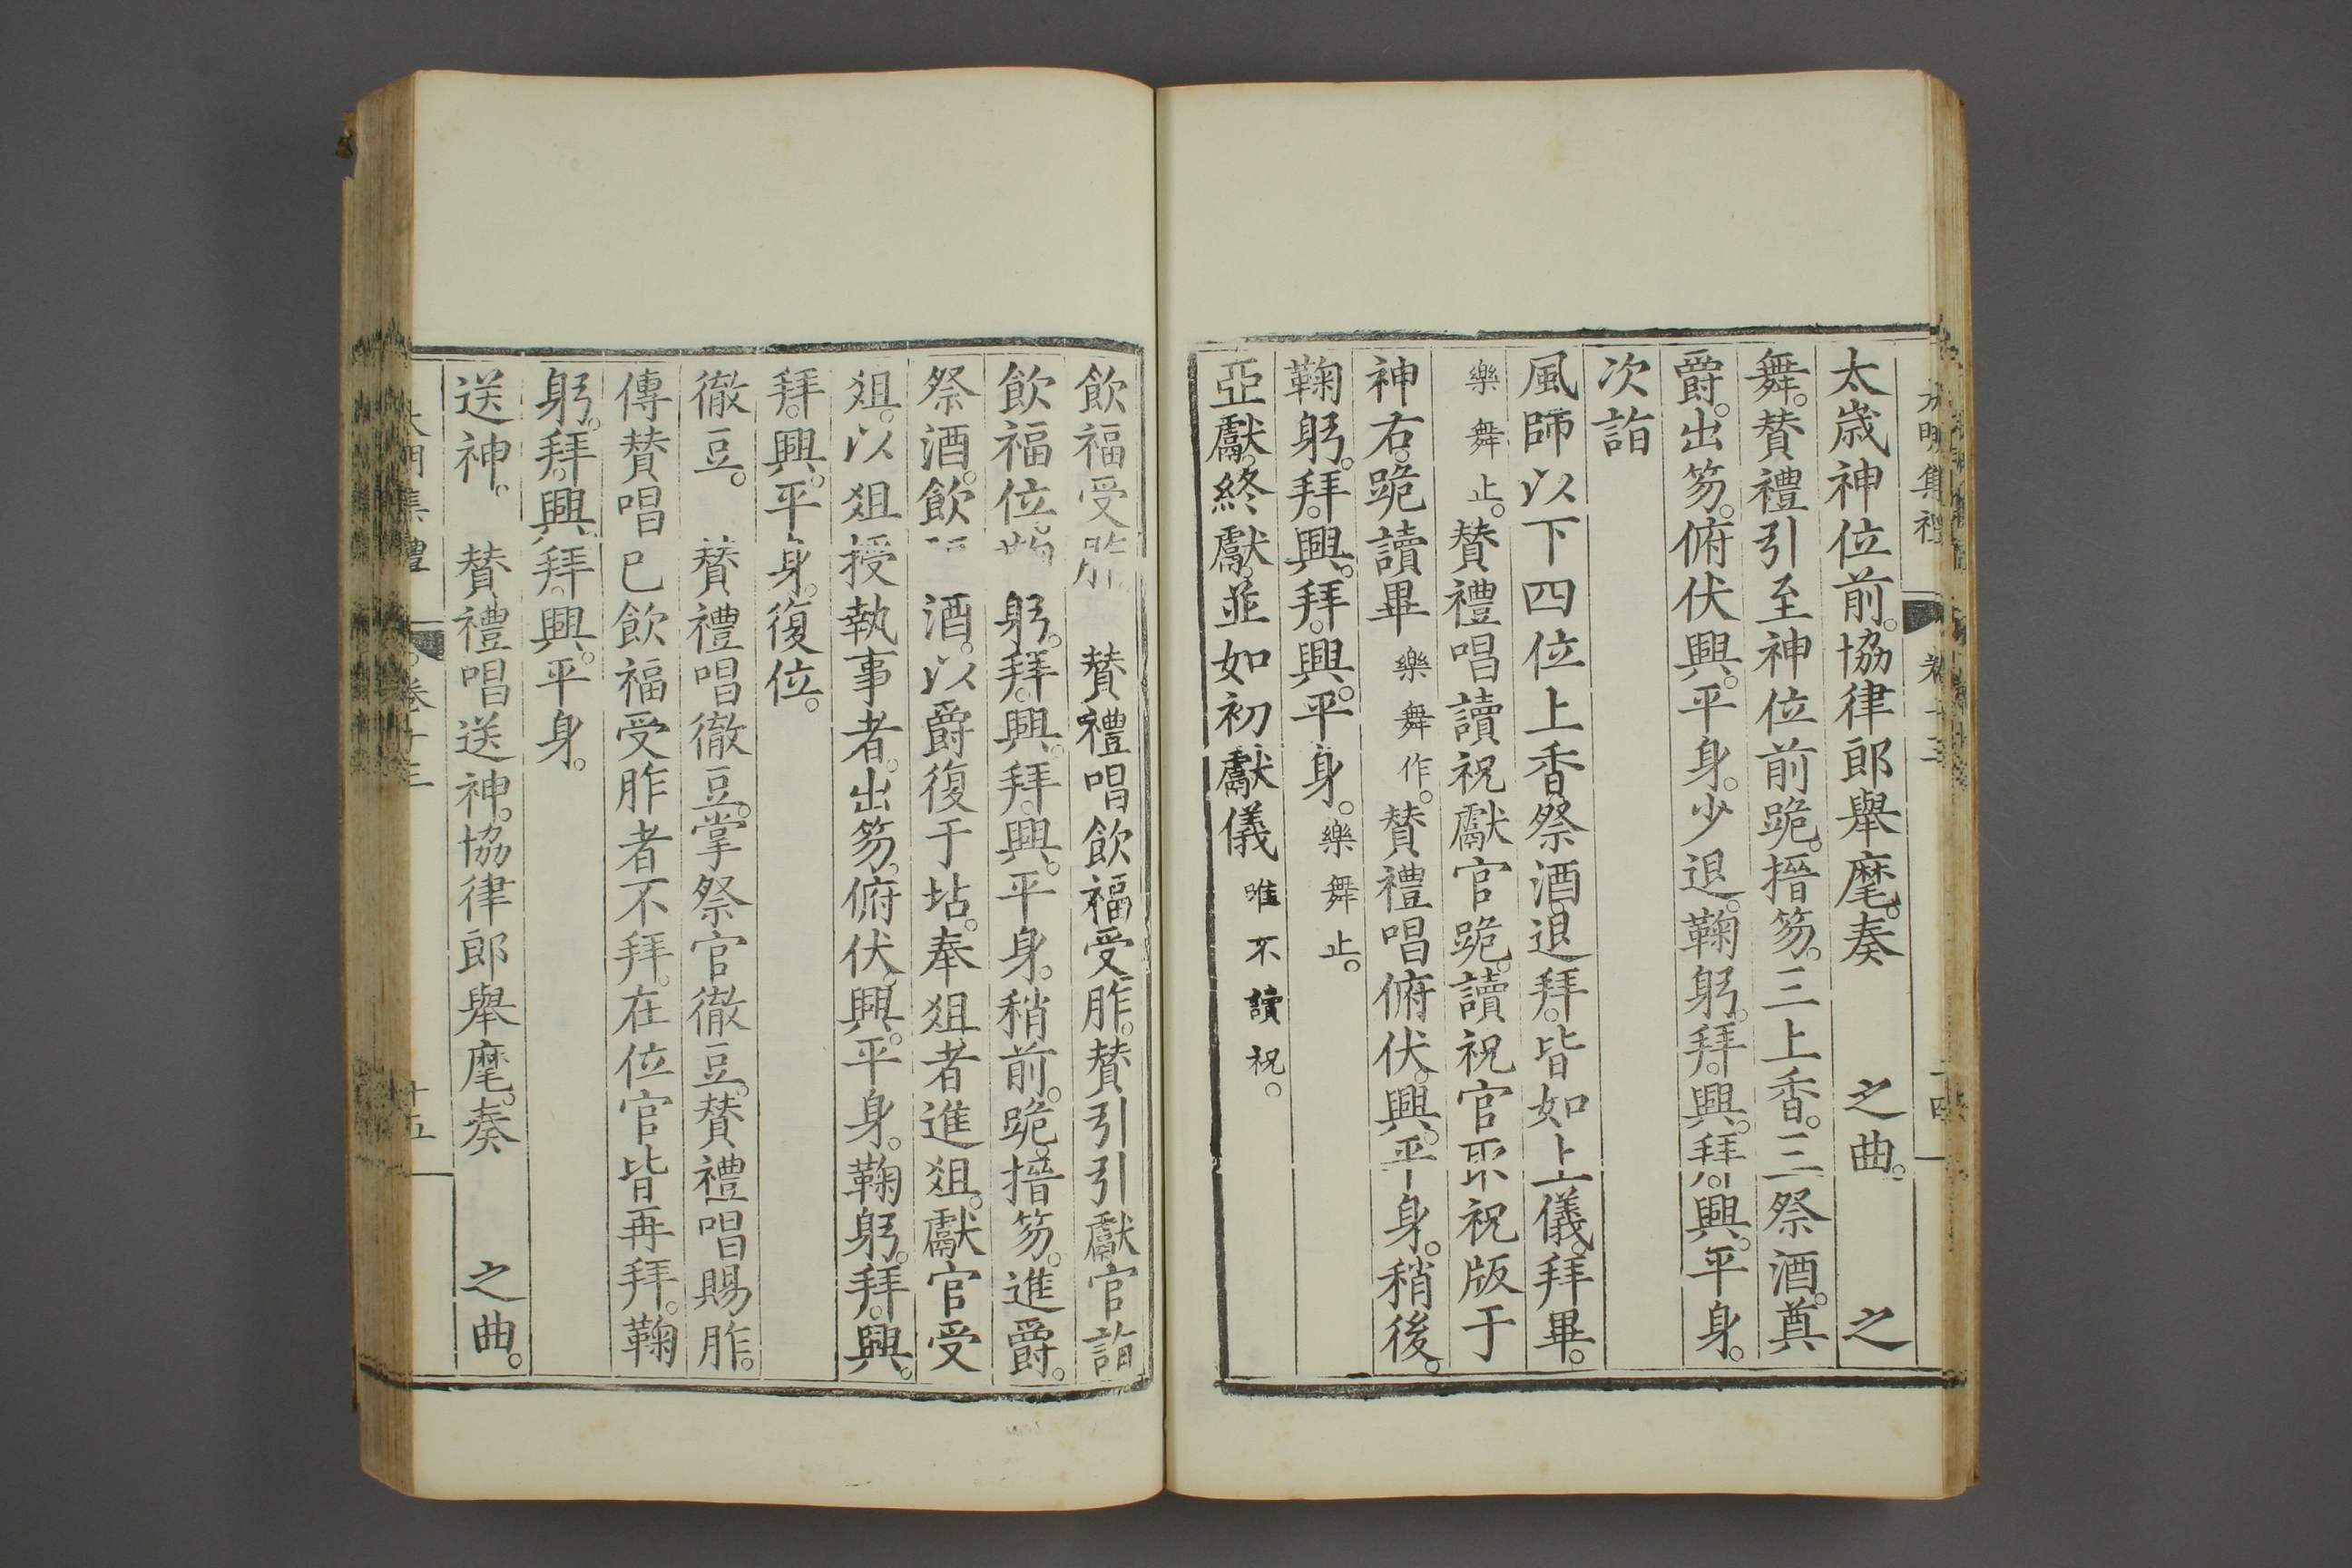 大明集禮 卷十三 十四
太歲神位前。協律郎舉麾。奏 之曲。 之
舞。贊禮引至神位前跪。搢笏。三上香。三祭酒。奠
爵。出笏。俯伏興。平身。少退。鞠躬。拜。興。拜。興。平身。
次詣
風師以下四位上香祭酒退拜。皆如上儀。拜畢。
樂舞止。贊禮唱讀祝獻官跪。讀祝官取祝版于
神右。跪讀畢樂舞作。贊禮唱俯伏。興。平身。稍後。
鞠躬。拜。興。拜。興。平身。樂舞止。
亞獻。終獻。並如初獻儀唯不讀祝。
飲福受胙 贊禮唱飲福受胙。贊引引獻官詣
飲福位。鞠躬。拜。興。拜。興。平身。稍前。跪搢笏。進爵。
祭酒。飲 酒。以爵復于坫。奉爼者進爼。獻官受
爼。以爼授執事者。出笏。俯伏。興。平身。鞠躬。拜。興。
拜。興。平身。復位。
徹豆。 贊禮唱徹豆。掌祭官徹豆。贊禮唱賜胙。
傳贊唱已飲福受胙者不拜。在位官皆再拜。鞠
躬。拜。興。拜。興。平身。
送神。 贊禮唱送神。協律郎舉麾。奏 之曲。
大明集禮 卷十三 十五